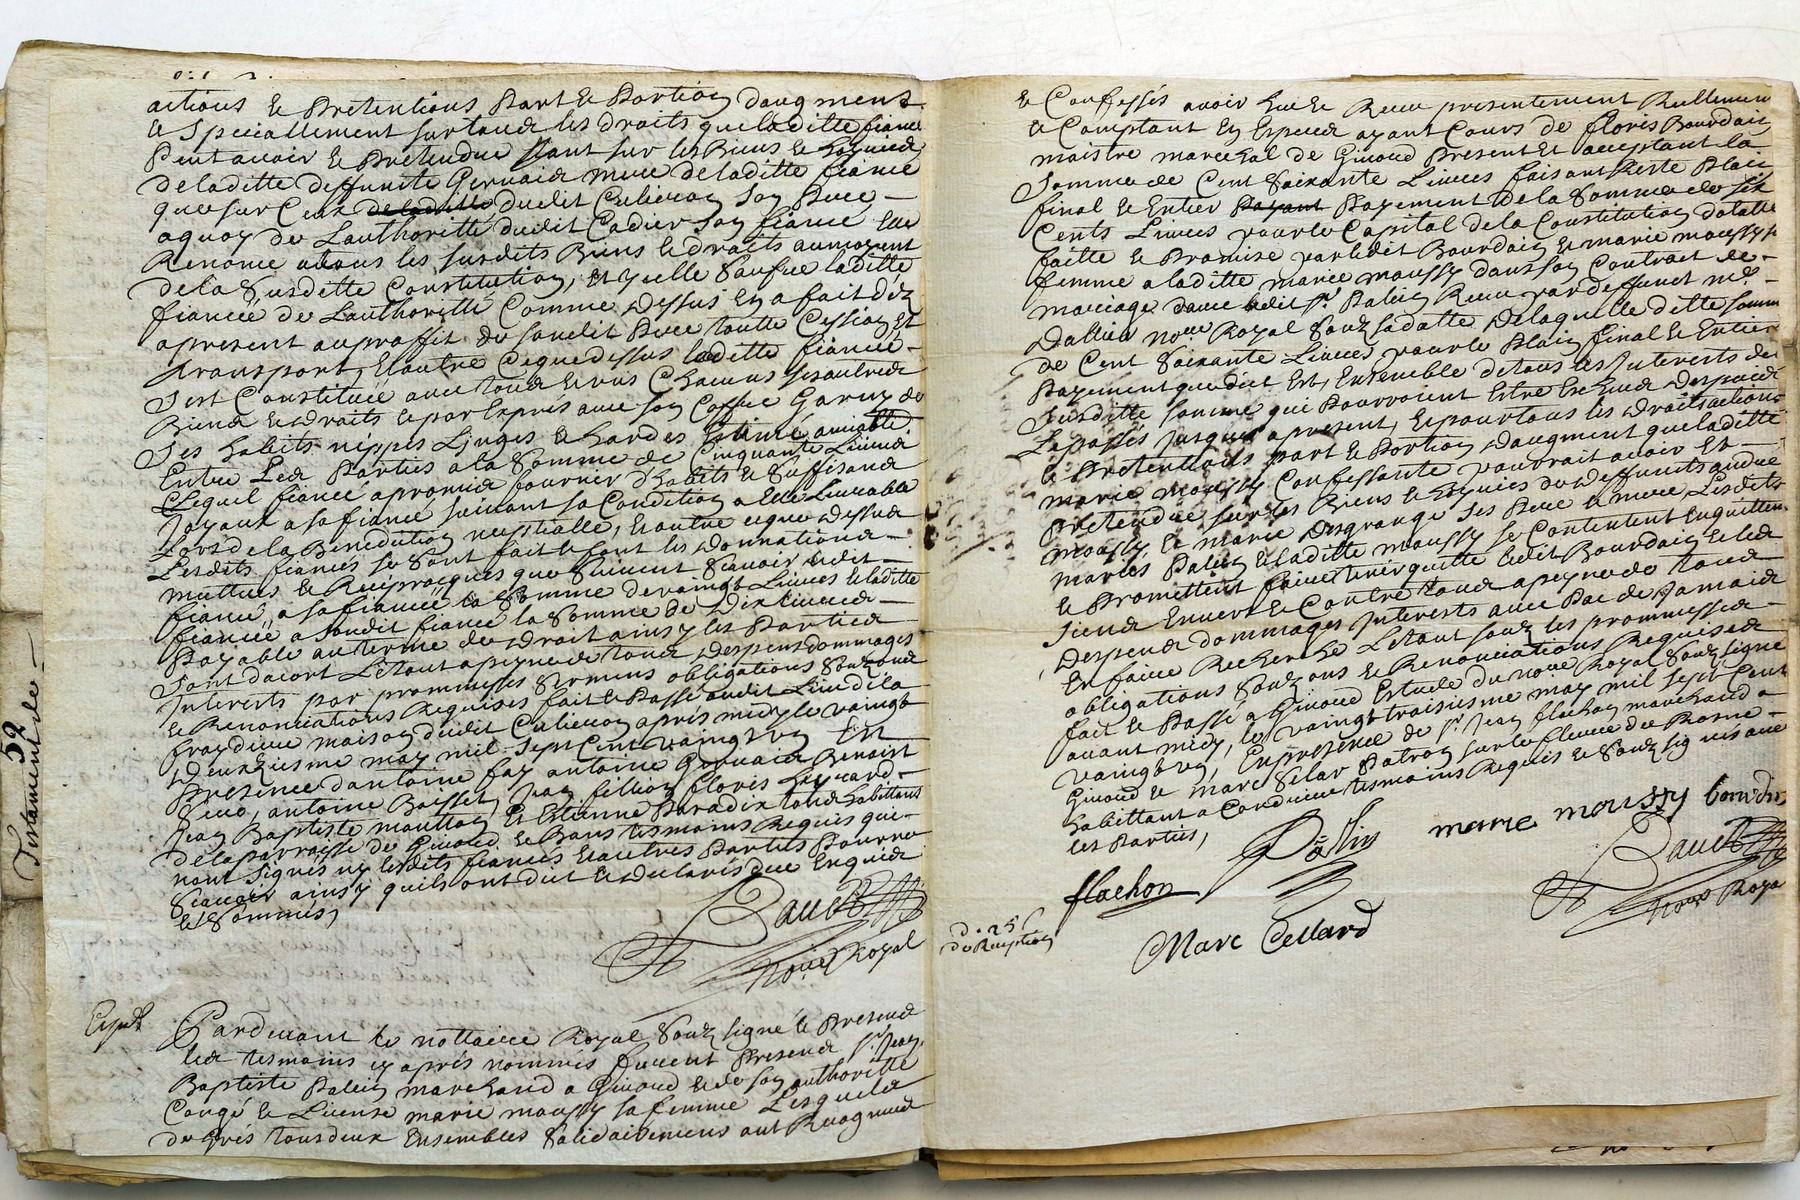 actions et Pretentions Part et Portion daugment
et Speciallement sur tous les droits que laditte fiancee
Peut avoir et Pretendre tant sur les Biens et hoyries
de laditte deffunte Gervaix mere de laditte fiancee
que sur Ceux de laditte dudit Culieron son Pere
aquoy de Lauthoritté dudit Cadier son fiance Elle
Renonce a tous les susdits Biens et droits au moyent
de la Susditte Constitution, Et quelle Soufue laditte
fiancée de Lauthoritté Comme Dessus En a fait dez
apresent au proffit de sondit Pere toutte Cession Et
transport, Et outre Ce que dessus laditte fiancée
Sest Constituée avec tous Chacuns ses autres
Biens et droits et par Exprés avec son Coffre Garny de
Ses habits nippes Linges et hardes Estimé amiable
Entre Les Parties a la Somme de Cinquante Livres
Lequel fiancé a promis fournir dhabits et Suffisans
Joyaux a sa fiancé suivant sa Condition a Elle Livrable
Lors de la Benediction nuptialle, Et outre ce que dessus
Lesdits fiancés se Sont fait et font les Donnations
mutties et Reciprocques que Suivent Scavoir ledit
fiancé, a sa fiancée la Somme de vaingt Livres et laditte
fiancée a Sondit fiancé la Somme de Dix Livres
Payable au terme de droit ainsy les Parties
Sont dacort Létant a peyne de tous Despens dommages
Interets par prommesses Sermens obligations Souz
et Renonciations Requises fait et Passé audit Lieu dela
fraydiere maison dudit Culieron aprés midy le vaingt
Deuxziesme may mil Sept Cent vaingt un En
Presence dantoine fay antoine Gervaix Benoist
antoine Boisset, Jean fellion floris
Jean Baptiste moutton Et Estienne Paradix tous habittans
de la parroisse de Givord, et Bans tesmoins Requis qui
nont Signés ny lesdits fiancés Et autres Parties Pour ne
Scavoir ainsy quils ont dict et declarés de ce Enquis
et Sommés,
nore Royal
Par devant le nottaire Royal Souz Signé et Presens
Les tesmoins cy aprés nommés furent Presens Sr Jean
Baptiste Palein marchand a Givord et de Son authoritté
Congé et License marie moussy sa femme Lesquels
de grés tous deux Ensembles Solidairement ont Recognus
Testament de
59
et Confessés avoir heu et Receu presentement Reellement
et Comptant En Especes ayant Cours de floris Bourdin
maistre marechal de Givord Present Et acceptant la
Somme de Cent Soixante Livres faisant Reste Plain
final et Entier Payant Payement de la Somme de Six
Cents Livres pour le Capital de la Constitution dotalle
faitte et Promise par ledit Bourdin et marie moussy sa
femme a laditte marie moussy dans son Contract de
mariage avec ledit Sr Palein Receu par deffunct me
Dallier nore Royal Souz Sa datte De laquelle ditte somme
de Cent Soixante Livres pour le Plain final et Entier
Payement que dict Est, Ensemble de tous les Interets de
Susditte somme qui Pourroient Estre
Le passés jusques apresent, Et pour tous les droits actions
et Pretentions part et Portion Daugment que laditte
marie moussy Confessante pourroit avoir Et
Pretendre sur les Biens et hoyries des deffunts
moussy et marie Desgrange ses Pere et mere Lesdits
mariés Palein et laditte moussy se Contentent En quittent
et Promettent faire tenir quitte ledit Bourdin et les
Siens Envers et Contre tous a peyne de tous
Despens dommages Interets avec Pac de Jamais
En faire Recherche Létant souz les prommesses
obligations Souz et Renonciations Requises
fait et Passé a Givord Estude du nore Royal Souz Signé
avant midy, le vaingt troisiesme may mil Sept Cent
vaingt un, En presence de Sr Jean flachon marchand a
Givord et marc Patron sur le fleuve du Rosne
habittant a Condrieu tesmoins Requis et Souz signés avec
les Parties,
marie moussy bourdin
flachon
Marc Cellard
nore Royal
de Reception